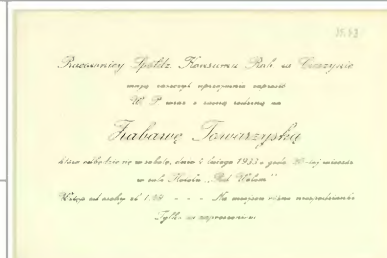 Pracownicy Spółdz. Konsumu Rob. w Cieszynie
mają zaszczyt uprzejmie zaprosić
W. P. wraz z rodziną na
Zabawę Towarzyską
która odbędzie się w sobotę, dnia lutego 1933 o godz. wieczór
w sali Hotelu „Pod Wołem”
Wstęp od osoby zł. 1.49 - - - Na miejscu różne niespodzianki
Tylko za zaproszeniem